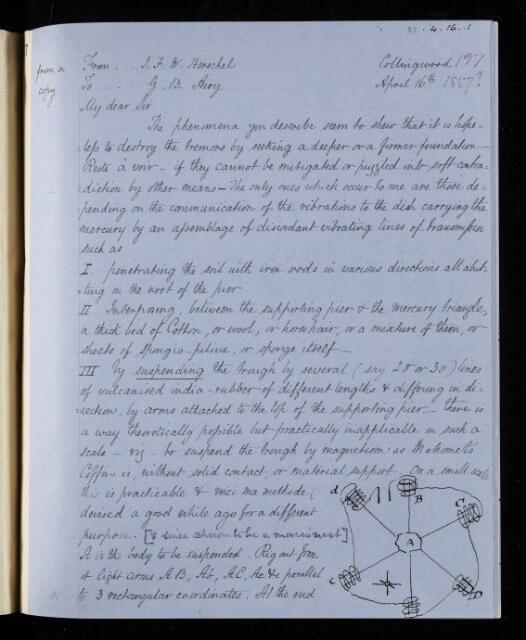 57.4.16.1
from a
copy
From... J. F. W. Herschel
Collingwood 197
To.... G. B. Airy
April 16th 1857?
My dear Sir
The phenomena you describe seem to shew that it is hope-
less to destroy the tremors by seeking a deeper or a firmer foundation —
Reste à voir – if they cannot be mitigated or puzzled into soft contra-
diction by other means – The only ones which occur to me are those de-
pending on the communication of the vibrations to the dish carrying the
mercury by an assemblage of discordant vibrating lines of transmission
such as
I. penetrating the soil with iron rods in various directions all abut-
ting on the root of the pier
II Interposing, between the supporting pier & the mercury triangle,
a thick bed of Cotton, or wool, or horsehair, or a mixture of them, or
sheets of Spongio-piline, or sponge itself —
III By suspending the trough by several (say 20 or 30) lines
of vulcanised india-rubber of different lengths & differing in di-
rection, by arms attached to the top of the supporting pier — there is
a way theoretically possible but practically inapplicable on such a
scale – viz – to suspend the trough by magnetism as Mahomet's
Coffin is, without solid contact, or material support. On a small scale
this is practicable & voici ma methode (
devised a good while ago for a different
purpose. [& since shewn to be a mares nest]
A is the body to be suspended. Rig out from
it light arms AB, Ab, AC, Ac &c parallel
to 3 rectangular coordinates. At the end
d
B
C
A
c
D